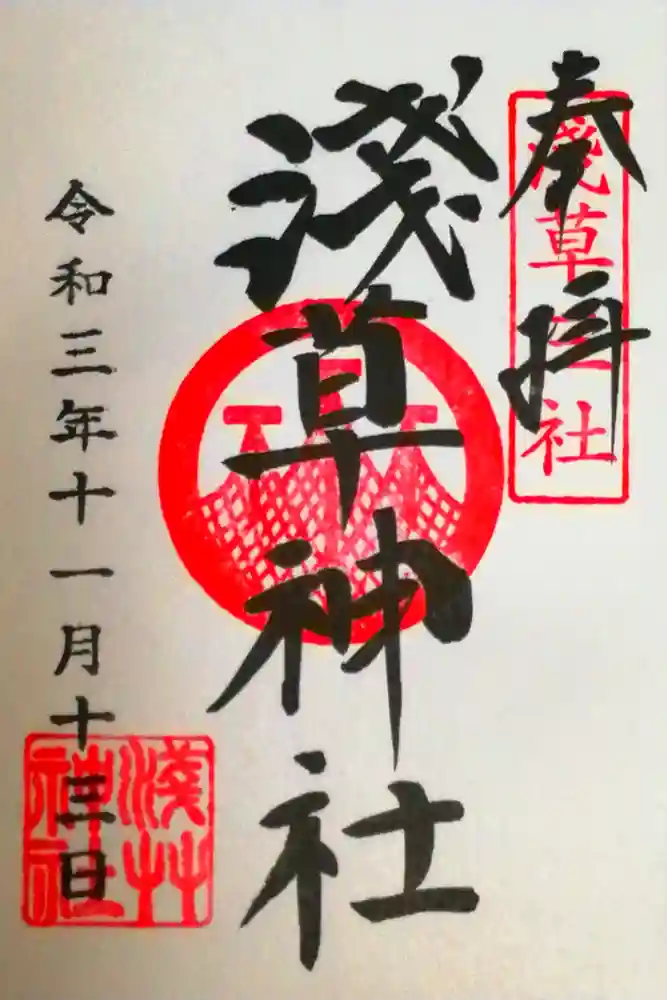 奉拝
淺草三社
淺草神社
令和三年十一月十三日
淺艸神社